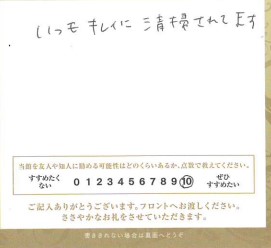 いつも キレイに 清掃されてます
当館を友人や知人に勧める可能性はどのくらいあるか、点数で教えてください。
すすめたく
ない
0 1 2 3 4 5 6 7 8 9 10
ぜひ
すすめたい
ご記入ありがとうございます。フロントへお渡しください。
ささやかなお礼をさせていただきます。
書ききれない場合は裏面へどうぞ